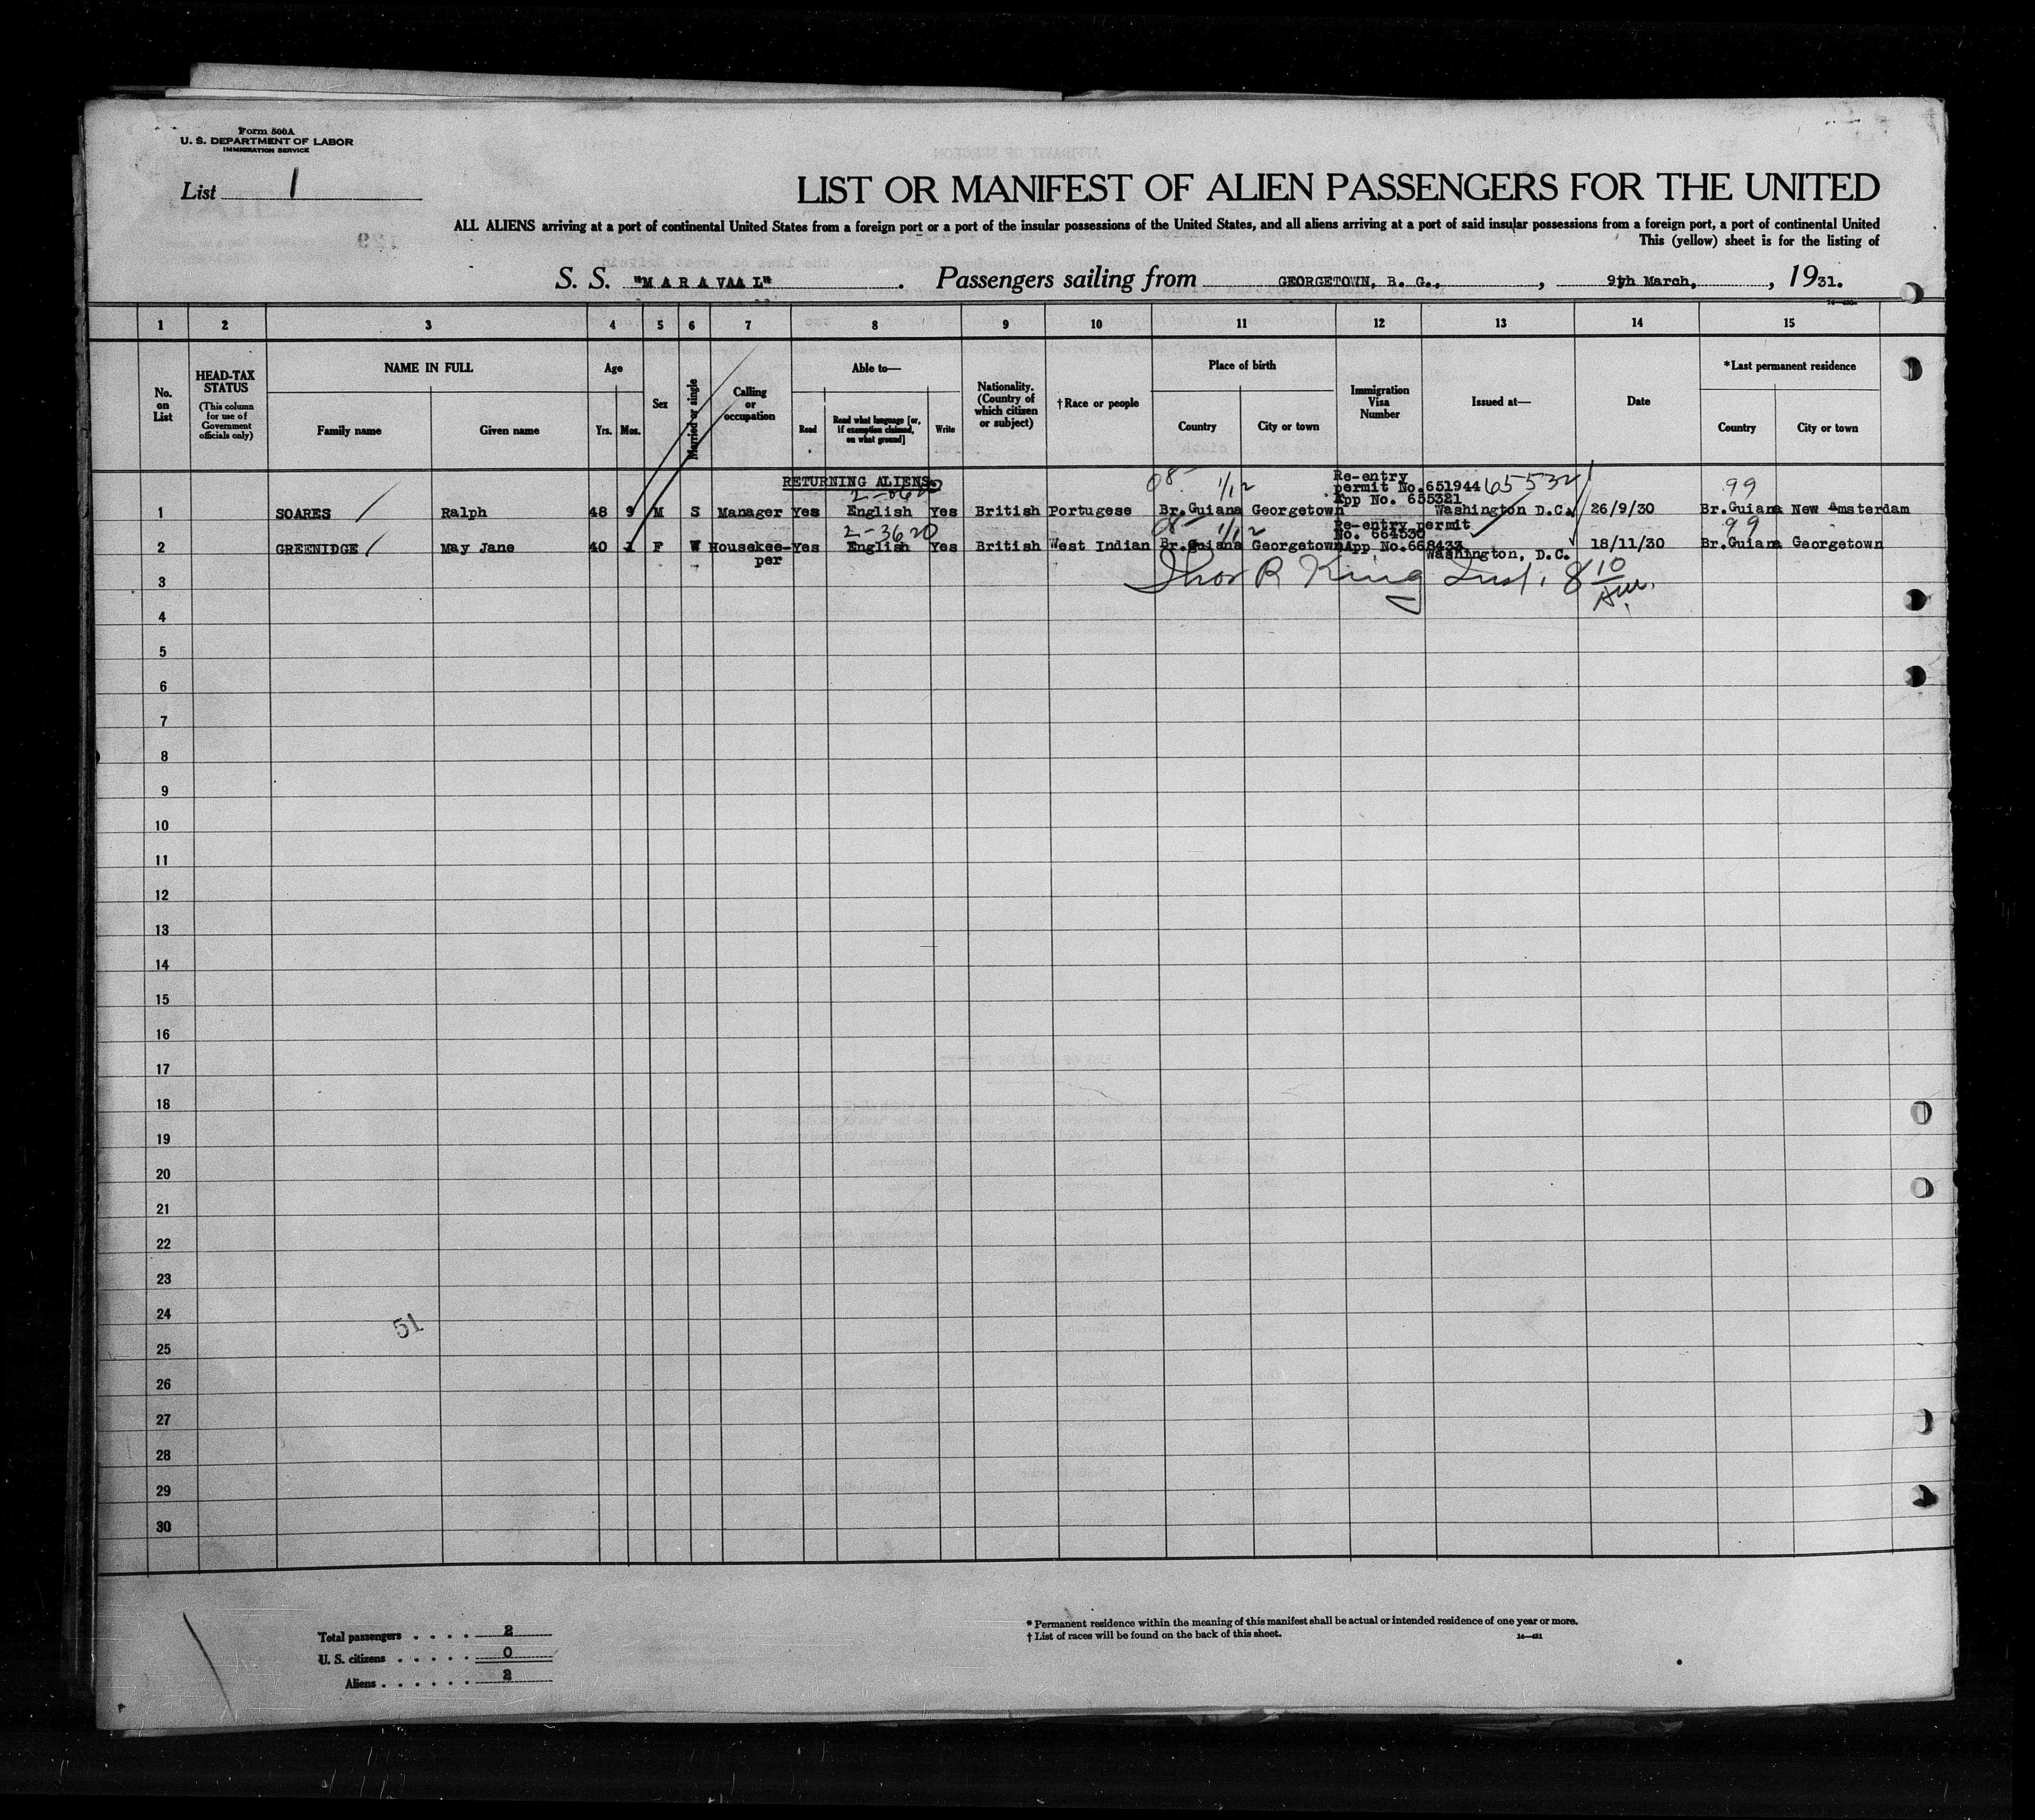 Form 500A
U. S. DEPARTMENT OF LABOR
IMMIGRATION SERVICE
List 1
LIST OR MANIFEST OF ALIEN PASSENGERS FOR THE UNITED
ALL ALIENS arriving at a port of continental United States from a foreign port or a port of the insular possessions of the United States, and all aliens arriving at a port of said insular possessions from a foreign port, a port of continental United
This (yellow) sheet is for the listing of
S. S. "M A R A VAA L". Passengers sailing from GEORGETOWN, B. G., , 9th March, , 1931.
1 2 3 4 5 6 7 8 9 10 11 12 13 14 15
No. on List
HEAD-TAX STATUS
(This column for use of Government officials only)
NAME IN FULL
Family name Given name
Age
Yrs. Mos.
Sex
Married or single
Calling or occupation
Able to—
Read
Read what language [or, if exemption claimed, on what ground]
Write
Nationality. (Country of which citizen or subject)
†Race or people
Place of birth
Country City or town
Immigration Visa Number
Issued at—
Date
*Last permanent residence
Country City or town
RETURNING ALIENS.
08 1/12 Re-entry 99
permit No.651944 65532
App No. 655321
1 SOARES Ralph 48 9 M S Manager Yes English Yes British Portugese Br.Guiana Georgetown Washington D.C. 26/9/30 Br.Guiana New Amsterdam
2-3620 08 1/12 Re-entry permit 99
No. 664530
2 GREENIDGE May Jane 40 1 F W Housekee- Yes English Yes British West Indian Br.Guiana Georgetown App No.668433 Washington, D.C. 18/11/30 Br.Guiana Georgetown
per
3 Thos R King Insp. 8 10
4
5
6
7
8
9
10
11
12
13
14
15
16
17
18
19
20
21
22
23
24
51
25
26
27
28
29
30
Total passengers . . . . 2
U. S. citizens . . . . . 0
Aliens . . . . . . 2
* Permanent residence within the meaning of this manifest shall be actual or intended residence of one year or more.
† List of races will be found on the back of this sheet.
14—431